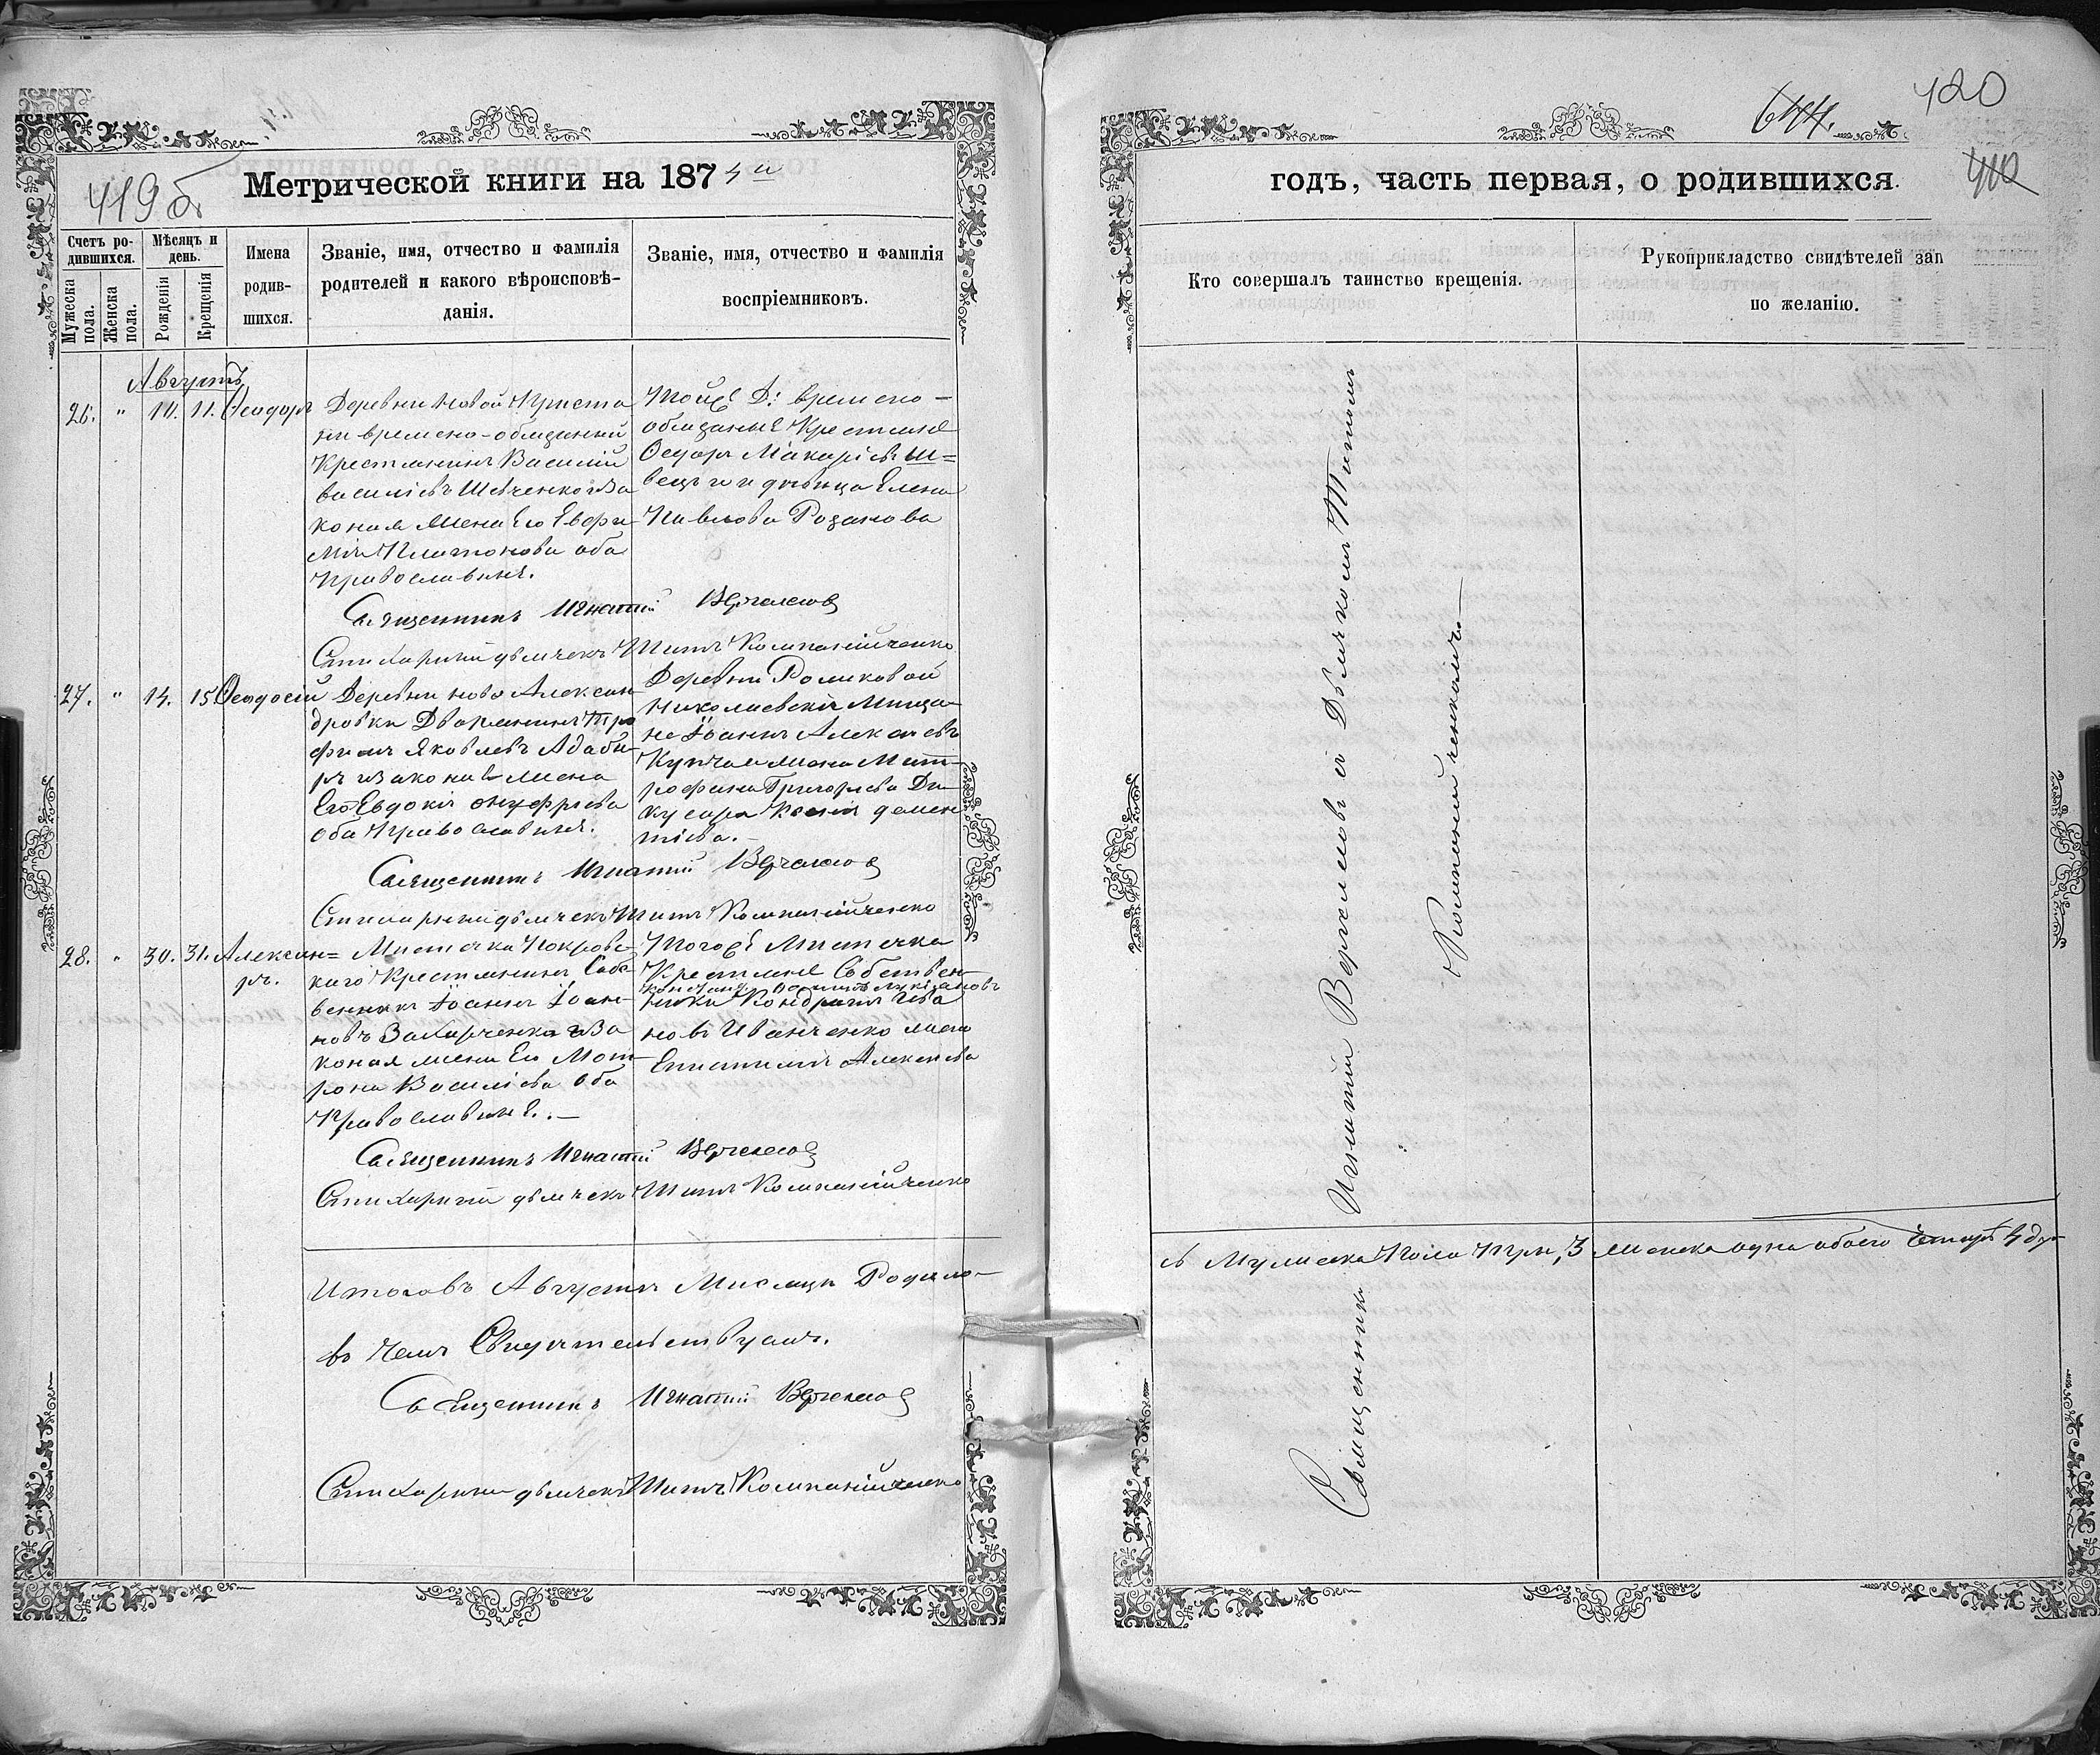 419 б.
Метрической книги на 187
Счетъ ро-
дившихся.
Мужеска пола.
Женска пола.
Мѣсяцъ и
день.
Рожденія
Крещенія
Имена
родив-
шихся.
Званіе, имя, отчество и фамилія
родителей и какого вѣроисповѣ-
данія.
Званіе, имя, отчество и фамилія
воспріемниковъ.
Августъ
26. " 11. Ѳеодоръ
Деревни Новой
временно-обязанный
Крестьянинъ Василій
Василіевъ Шевченко и За
коная жена Его Евфи
мія Платонова оба
православные.
Тойже Д: времено-
обязаные Крестьяне
Ѳеодоръ Макаріевъ Ш=
вецъ и дѣвица Елена
Павлова Розанова
Священникъ Игнатій
Стихарный дьячекъ Титъ Компанійченко
27. " 14. 15 Ѳеодосій
Деревни Ново Алексан
дровки Дворянинъ Тро
фимъ Яковлевъ
и законая жена
Его Евдокія Онуфріева
оба православные.
Деревни
Николаевскіе Мѣща-
не Іоаннъ Алексѣевъ
жена Мит
рофана Григорьева Ди
кусара Ксенія Демен
тіева.-
Священникъ Игнатій
Стихарный дьячекъ Титъ Компанійченко
28. " 30. 31. Алексан=
ръ.
Мѣстечка Покровс
каго Крестьянинъ Собс
венникъ Іоаннъ Іоан-
новъ Захарченко и За
коная жена Его Мот
рона Василіева оба
Православные.-
Тогоже Мѣстечка
Крестьяне Собствен
ники Кондратъ Ива
новъ Иванченко жена
Алексѣева
Священникъ Игнатій
Стихарный дьячекъ Титъ Компанійченко
Итого въ Августѣ Мѣсяцѣ Родило-
въ чемъ Свидѣтельствуемъ.
Священникъ Игнатій
Стихарный дьячекъ Титъ Компанійченко
644.
420
410
годъ, часть первая, о родившихся.
Кто совершалъ таинство крещенія.
Рукоприкладство свидѣтелей зап
по желанію.
Священникъ Игнатій съ Дьячкомъ Титомъ
Компанійченкомъ.—
сь Мужеска Пола три, 3 женска одна обоего четыре 4 ду-